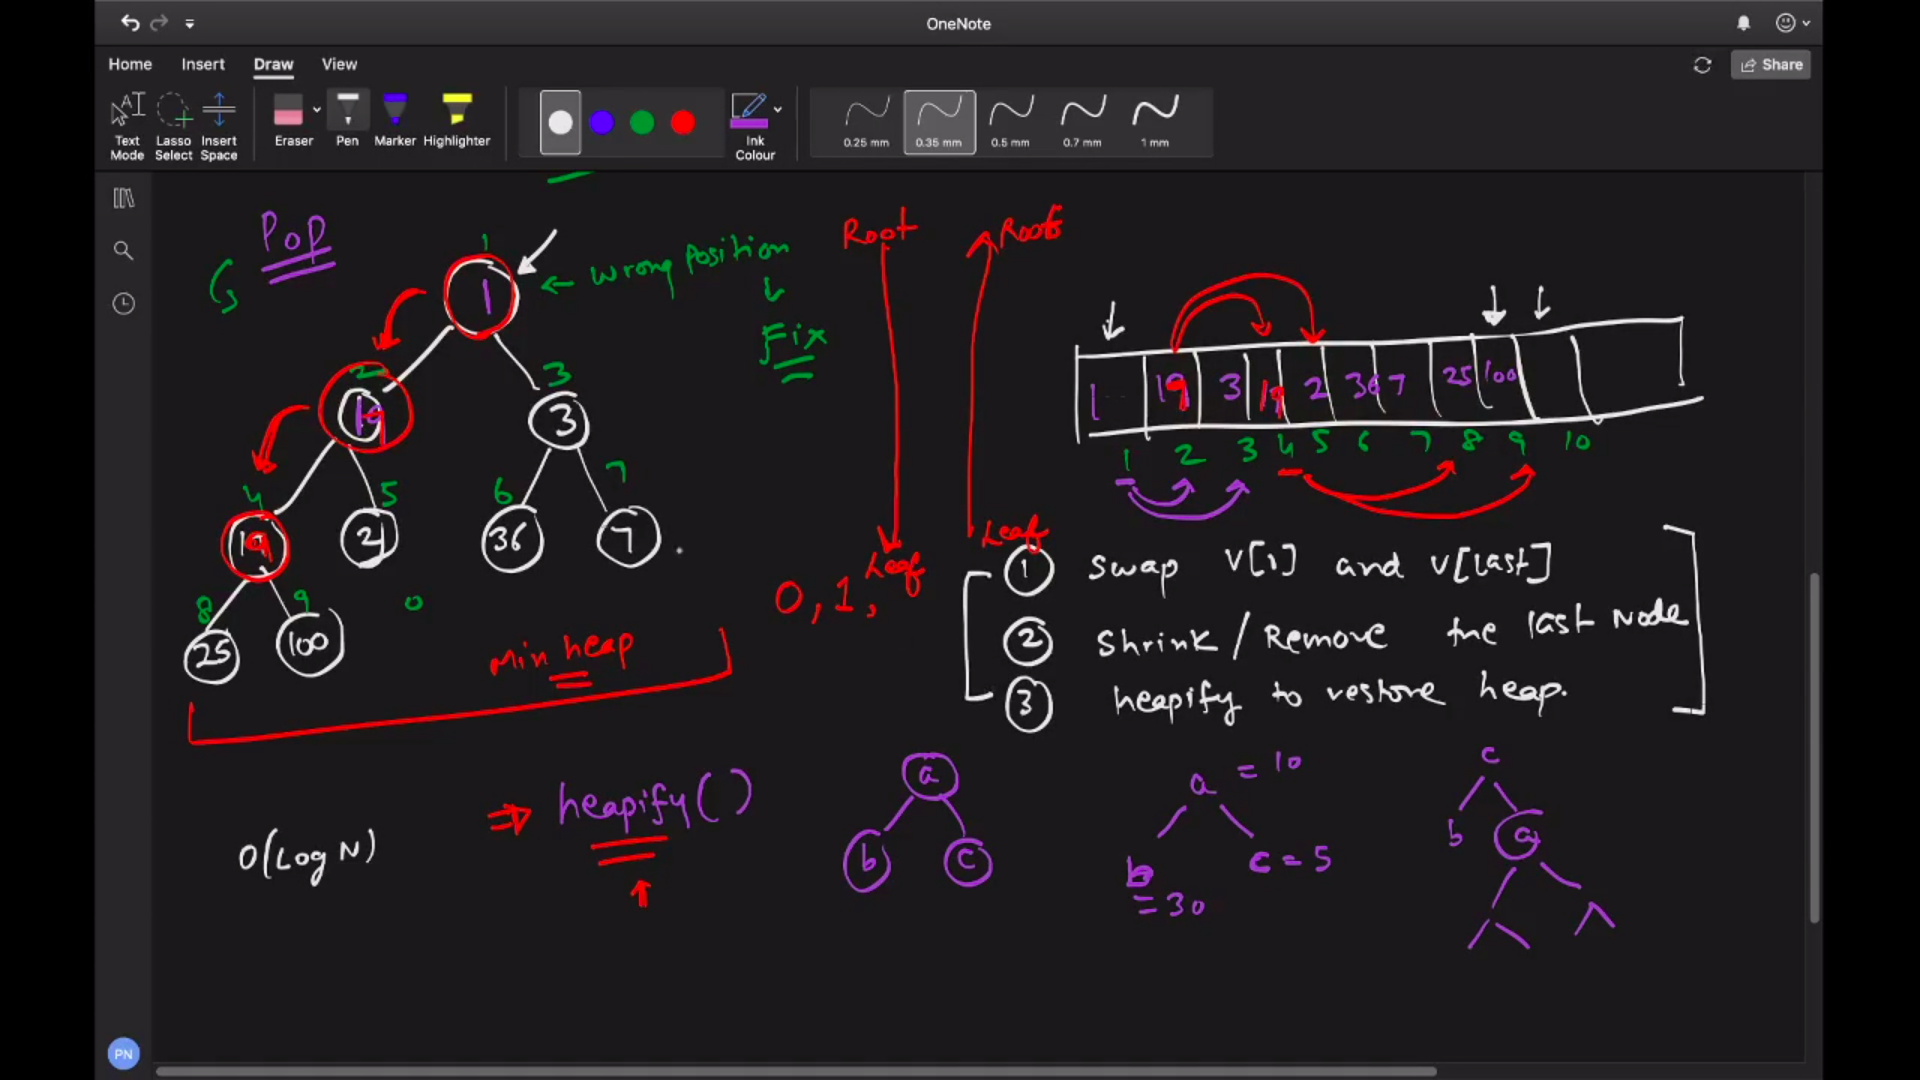 OneNote
Home Insert Draw View
Share
Text Mode
Lasso Select
Insert Space
Eraser
Pen
Marker
Highlighter
Ink Colour
0.25 mm
0.35 mm
0.5 mm
0.7 mm
1 mm
Pop
1
1
← wrong position
Fix
Root
Leaf
3
3
4
5
6
7
36
7
8
9
0
25
100
Min heap
0, 1,
Leaf
1 19 3 19 2 36 7 25 100
1 2 3 4 5 6 7 8 9 10
1 swap V[1] and V[last]
2 Shrink / Remove the last Node
3 heapify to restore heap.
O(Log N)
⇒ heapify()
a
b c
a = 10
b = 30
c = 5
c
b a
PN